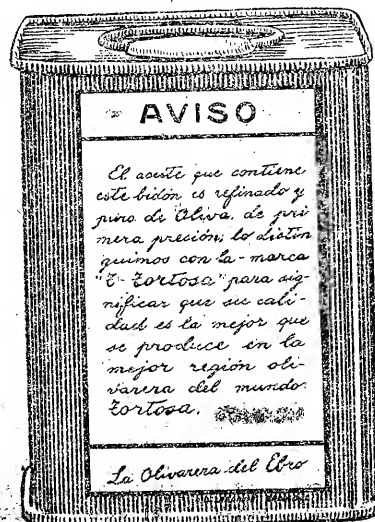 AVISO
El aceite que contiene
este bidón es refinado y
puro de Oliva, de pri
mera preción; lo distin
guimos con la - marca
"E- Tortosa" para sig-
nificar que su cali-
dad es la mejor que
se produce en la
mejor región oli-
varera del mundo:
Tortosa.
La Olivarera del Ebro